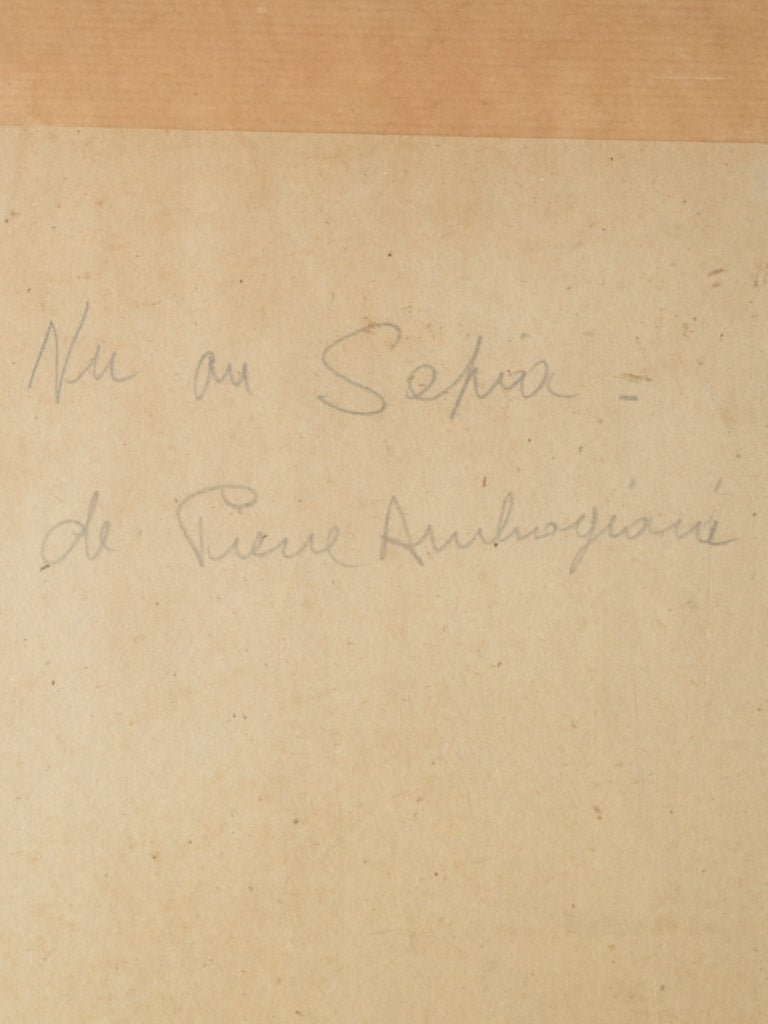 Nu au Sepia =
de Pierre Ambrogiani